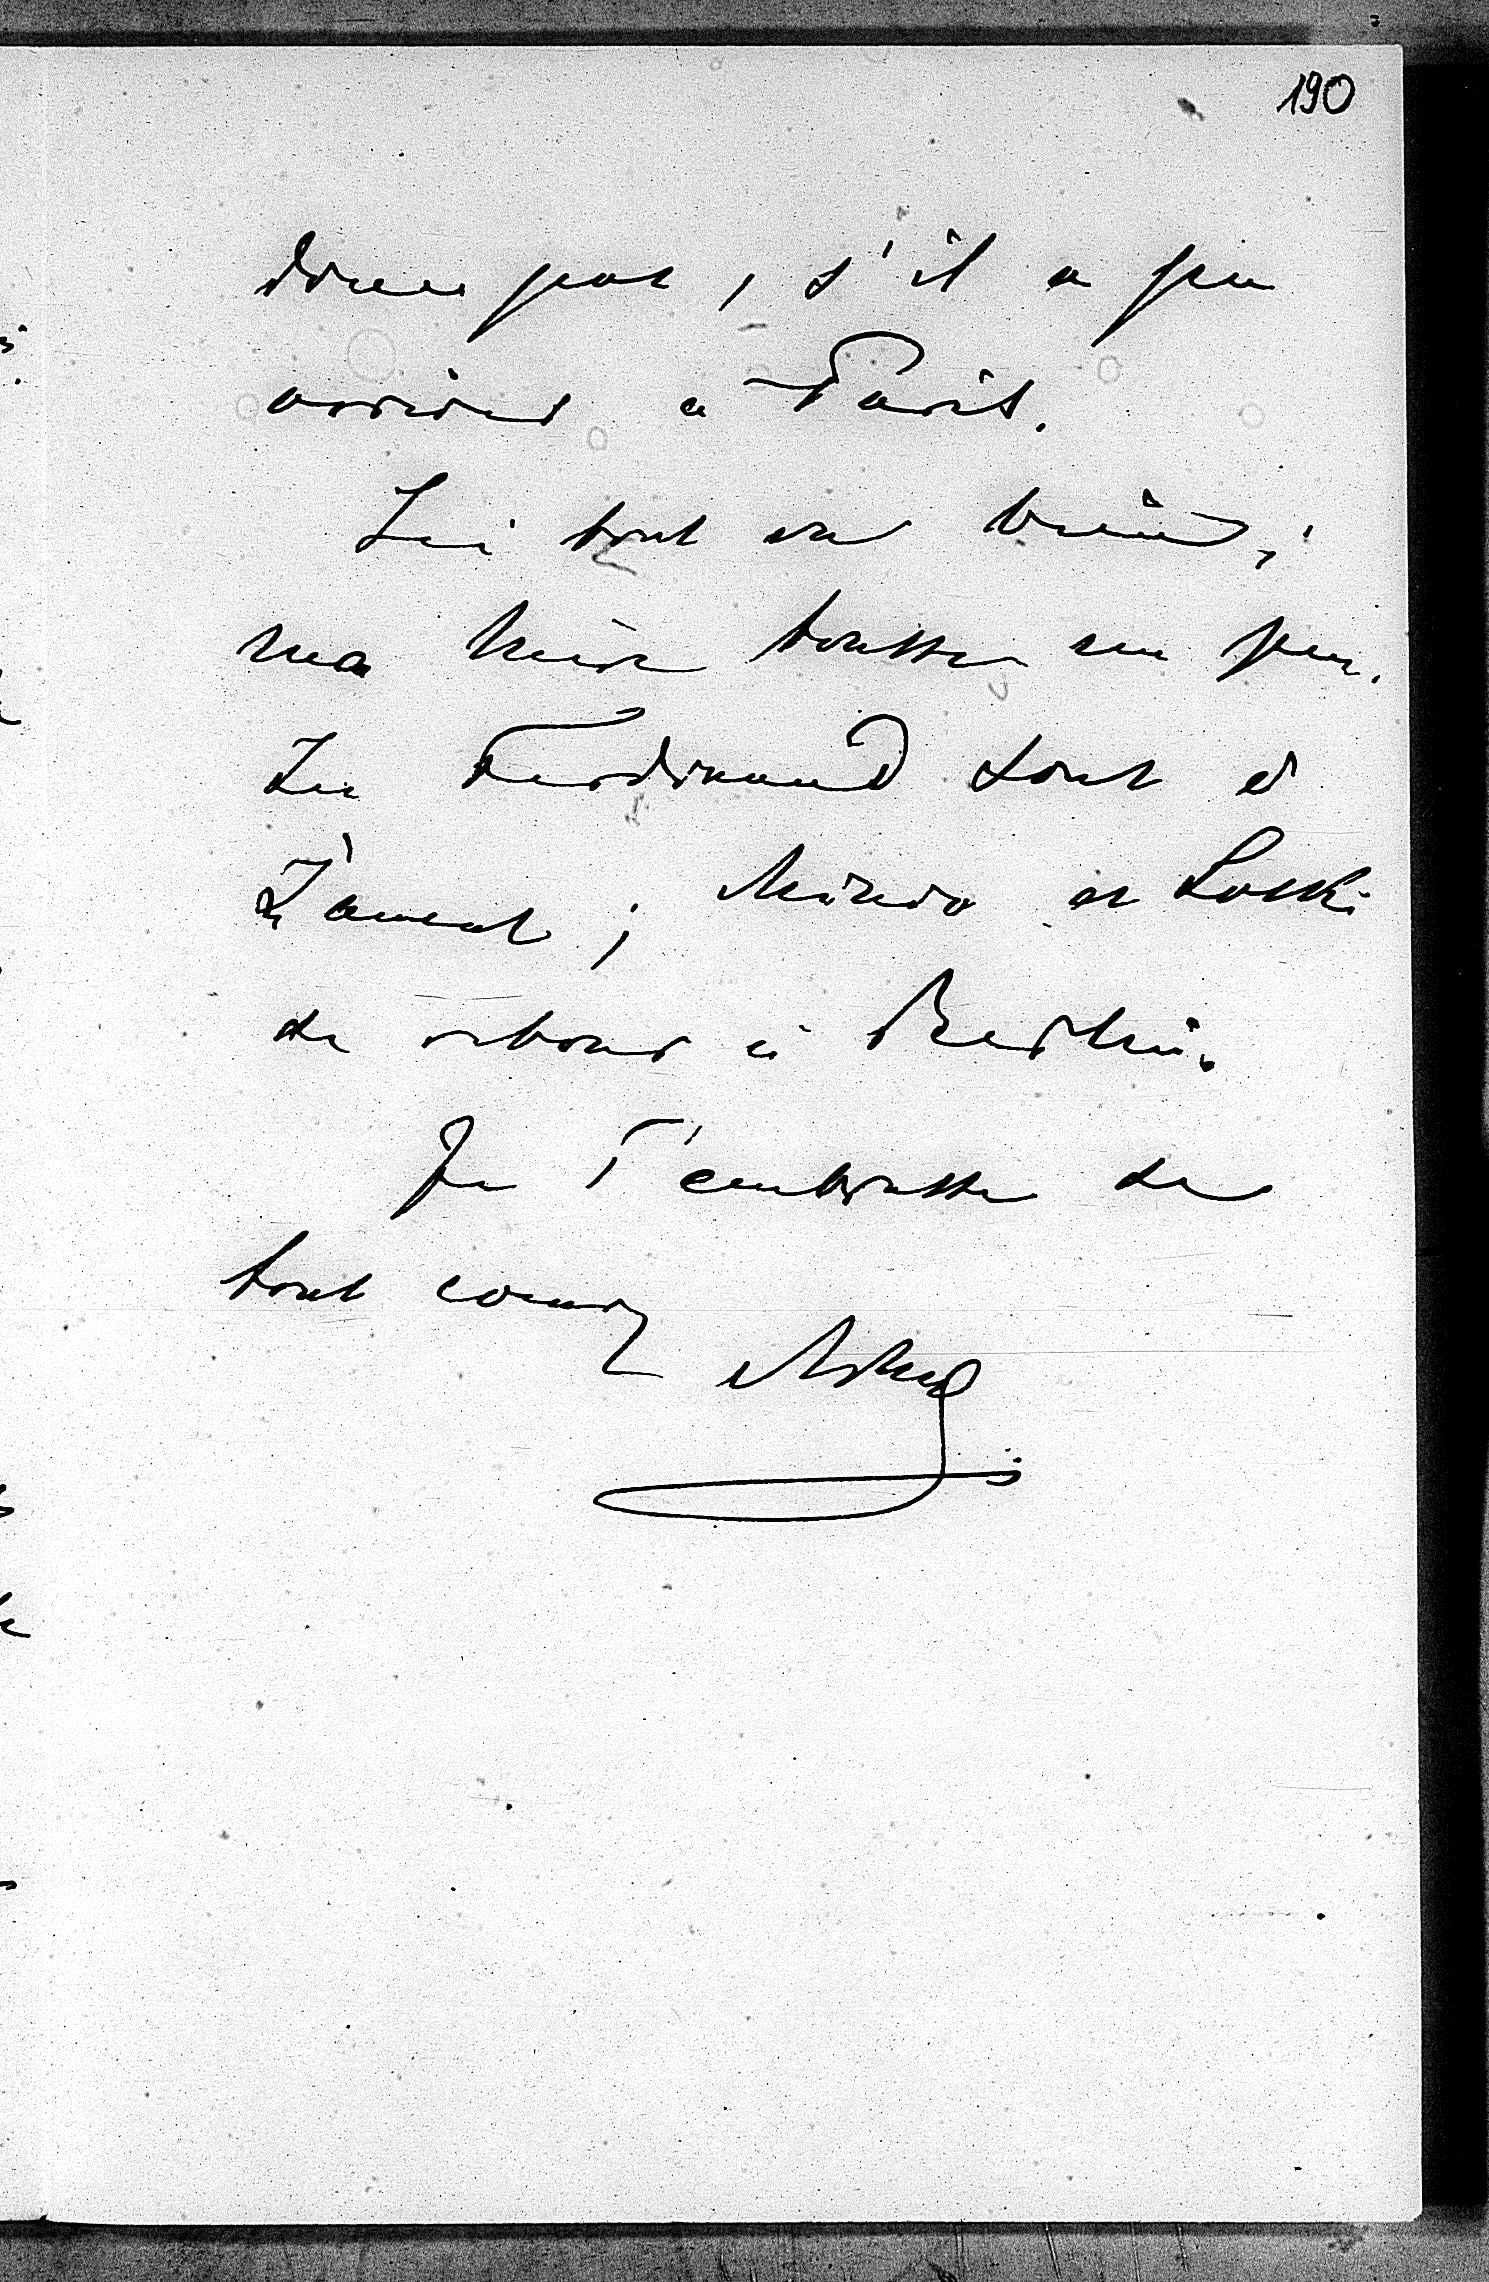 190
donne pas, s'il a pu
arriver a Paris.
Ici tout va bien;
ma mère tousse un peu.
Les Ferdinand sont à
Zámek; et Loulki
de retour à Berlin.
Je T'embrasse de
tout coeur